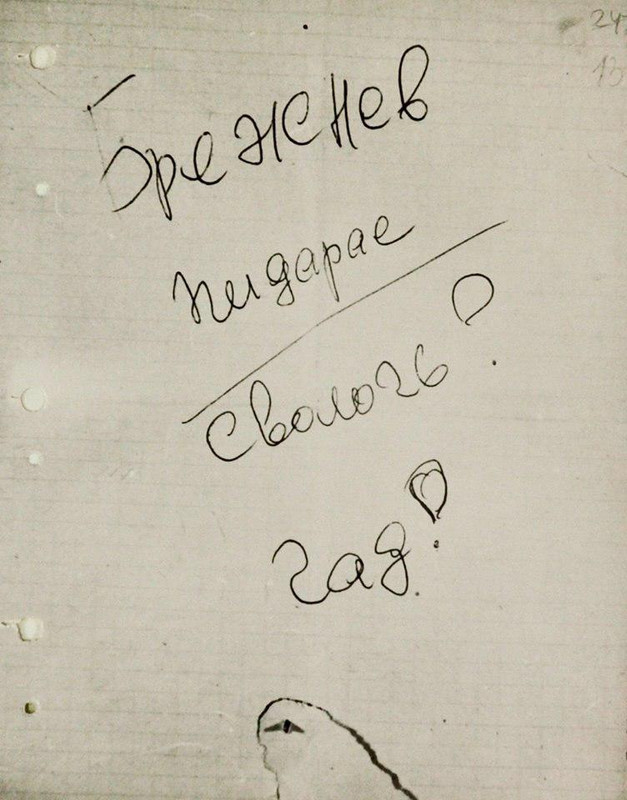 247
13
Брежнев
пидарас
Сволочь!
гад!